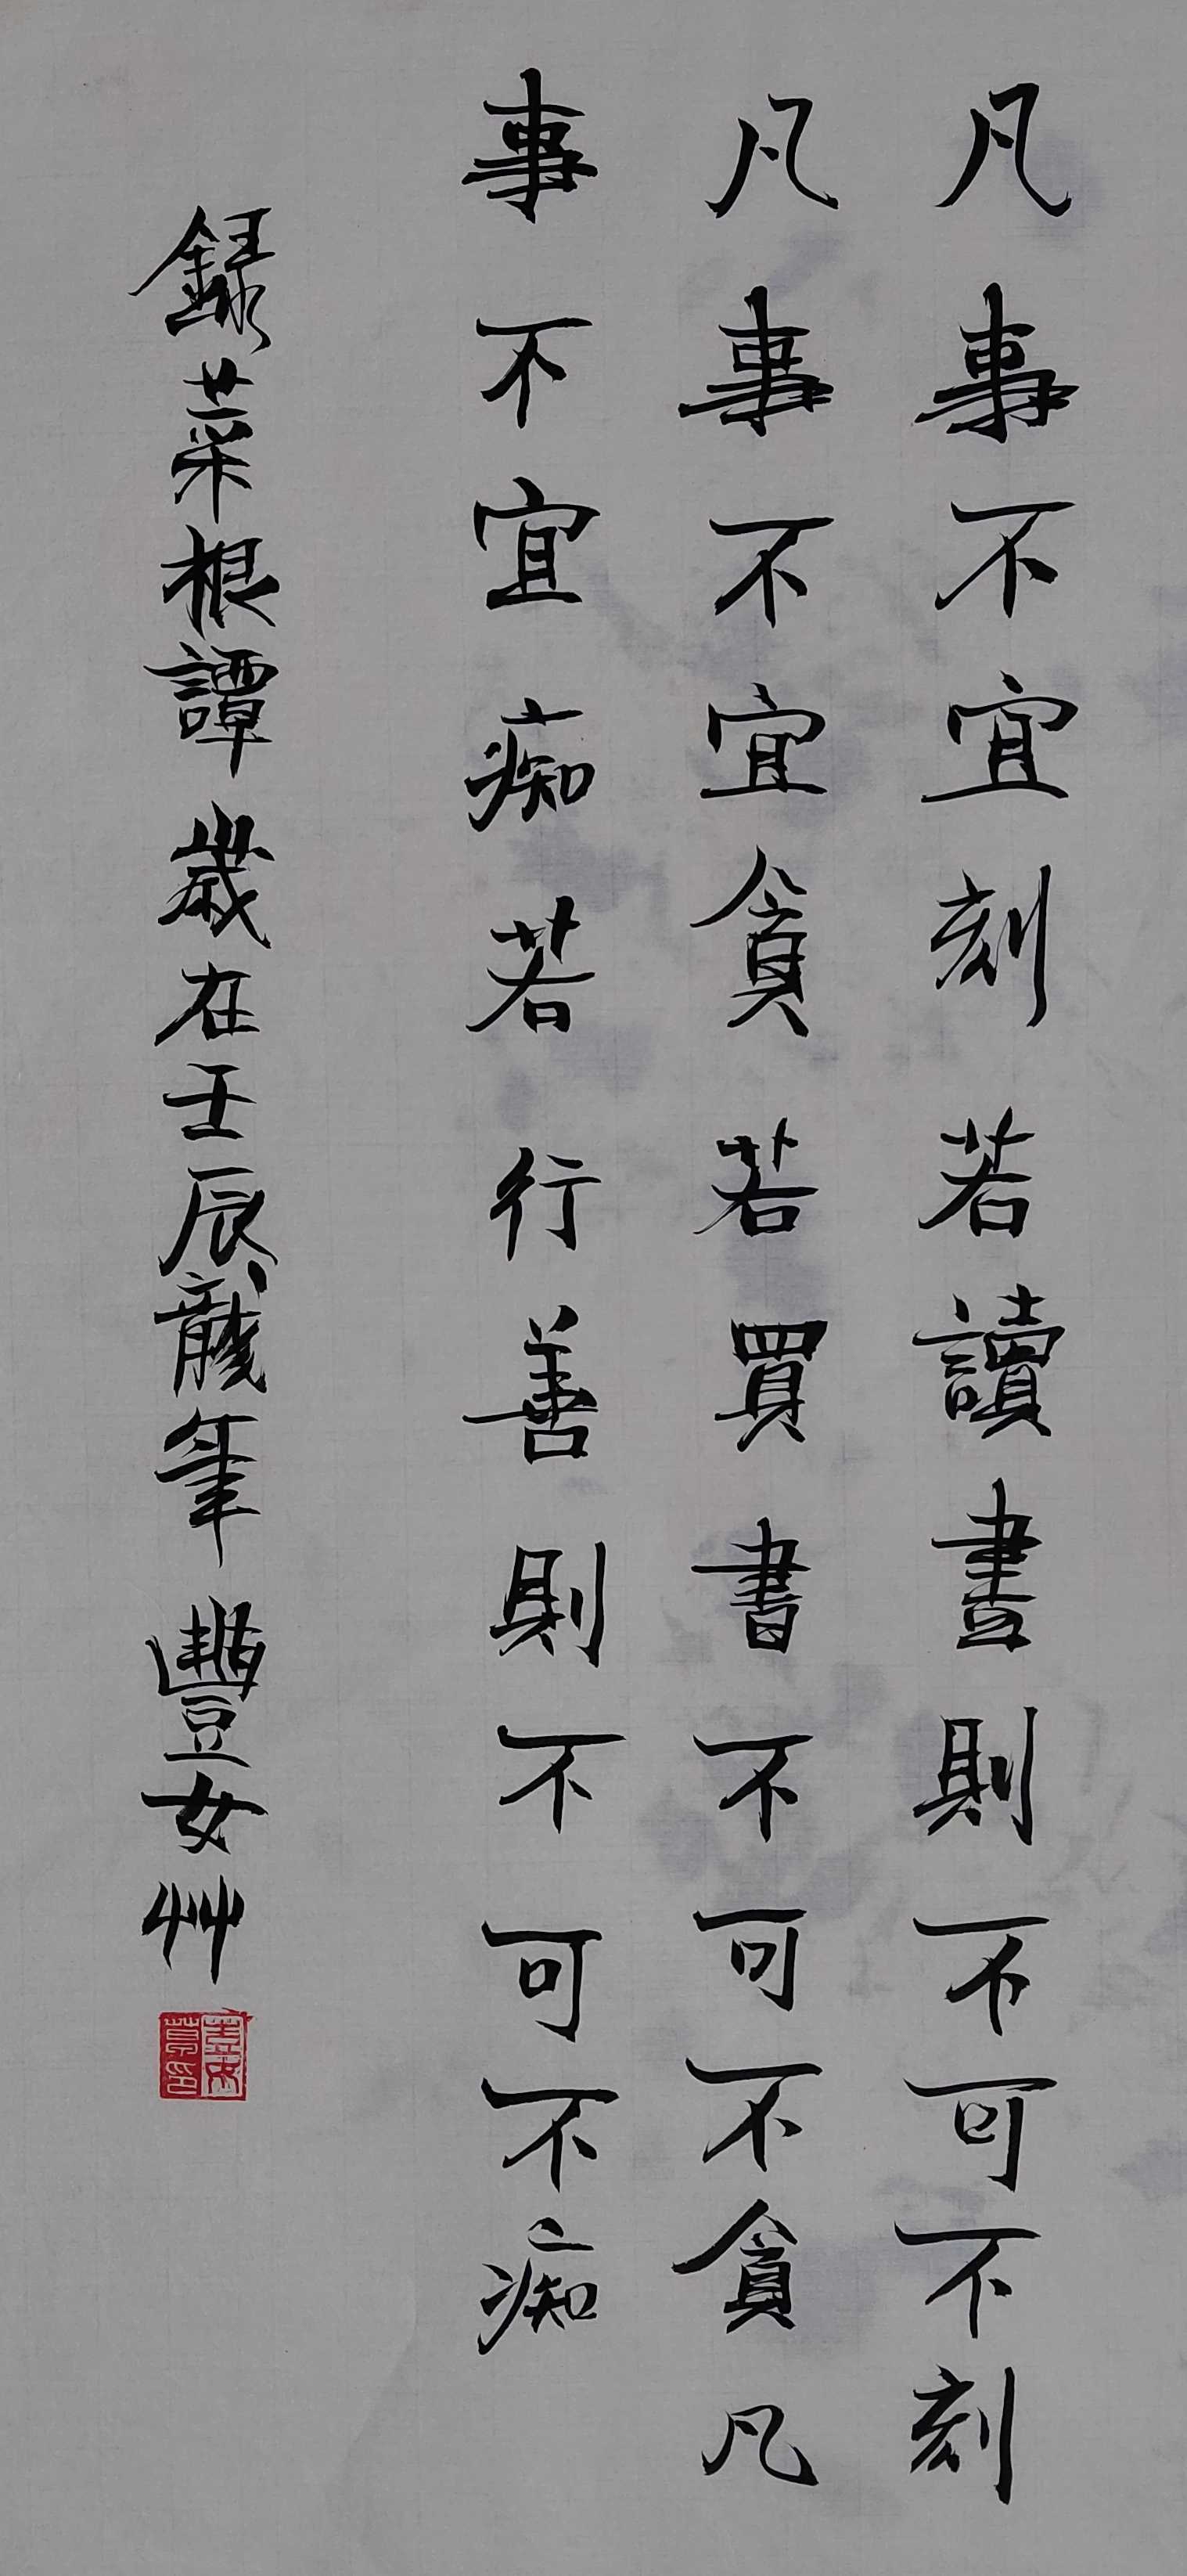 凡事不宜刻若讀書則不可不刻
凡事不宜貪若買書不可不貪凡
事不宜痴若行善則不可不痴
録菜根譚歲在壬辰龍年豐女艸